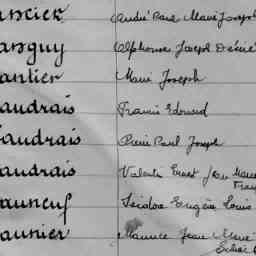 ancier André Marie Joseph
anguy Alphonse Joseph Désiré
antier Marie Joseph
audrais Francis Edouard
audrais Pierre Paul Joseph
audrais Valentin Ernest Jean Marie
auneuf Isidore Eugène Louis
aunier Maurice Jean Marie